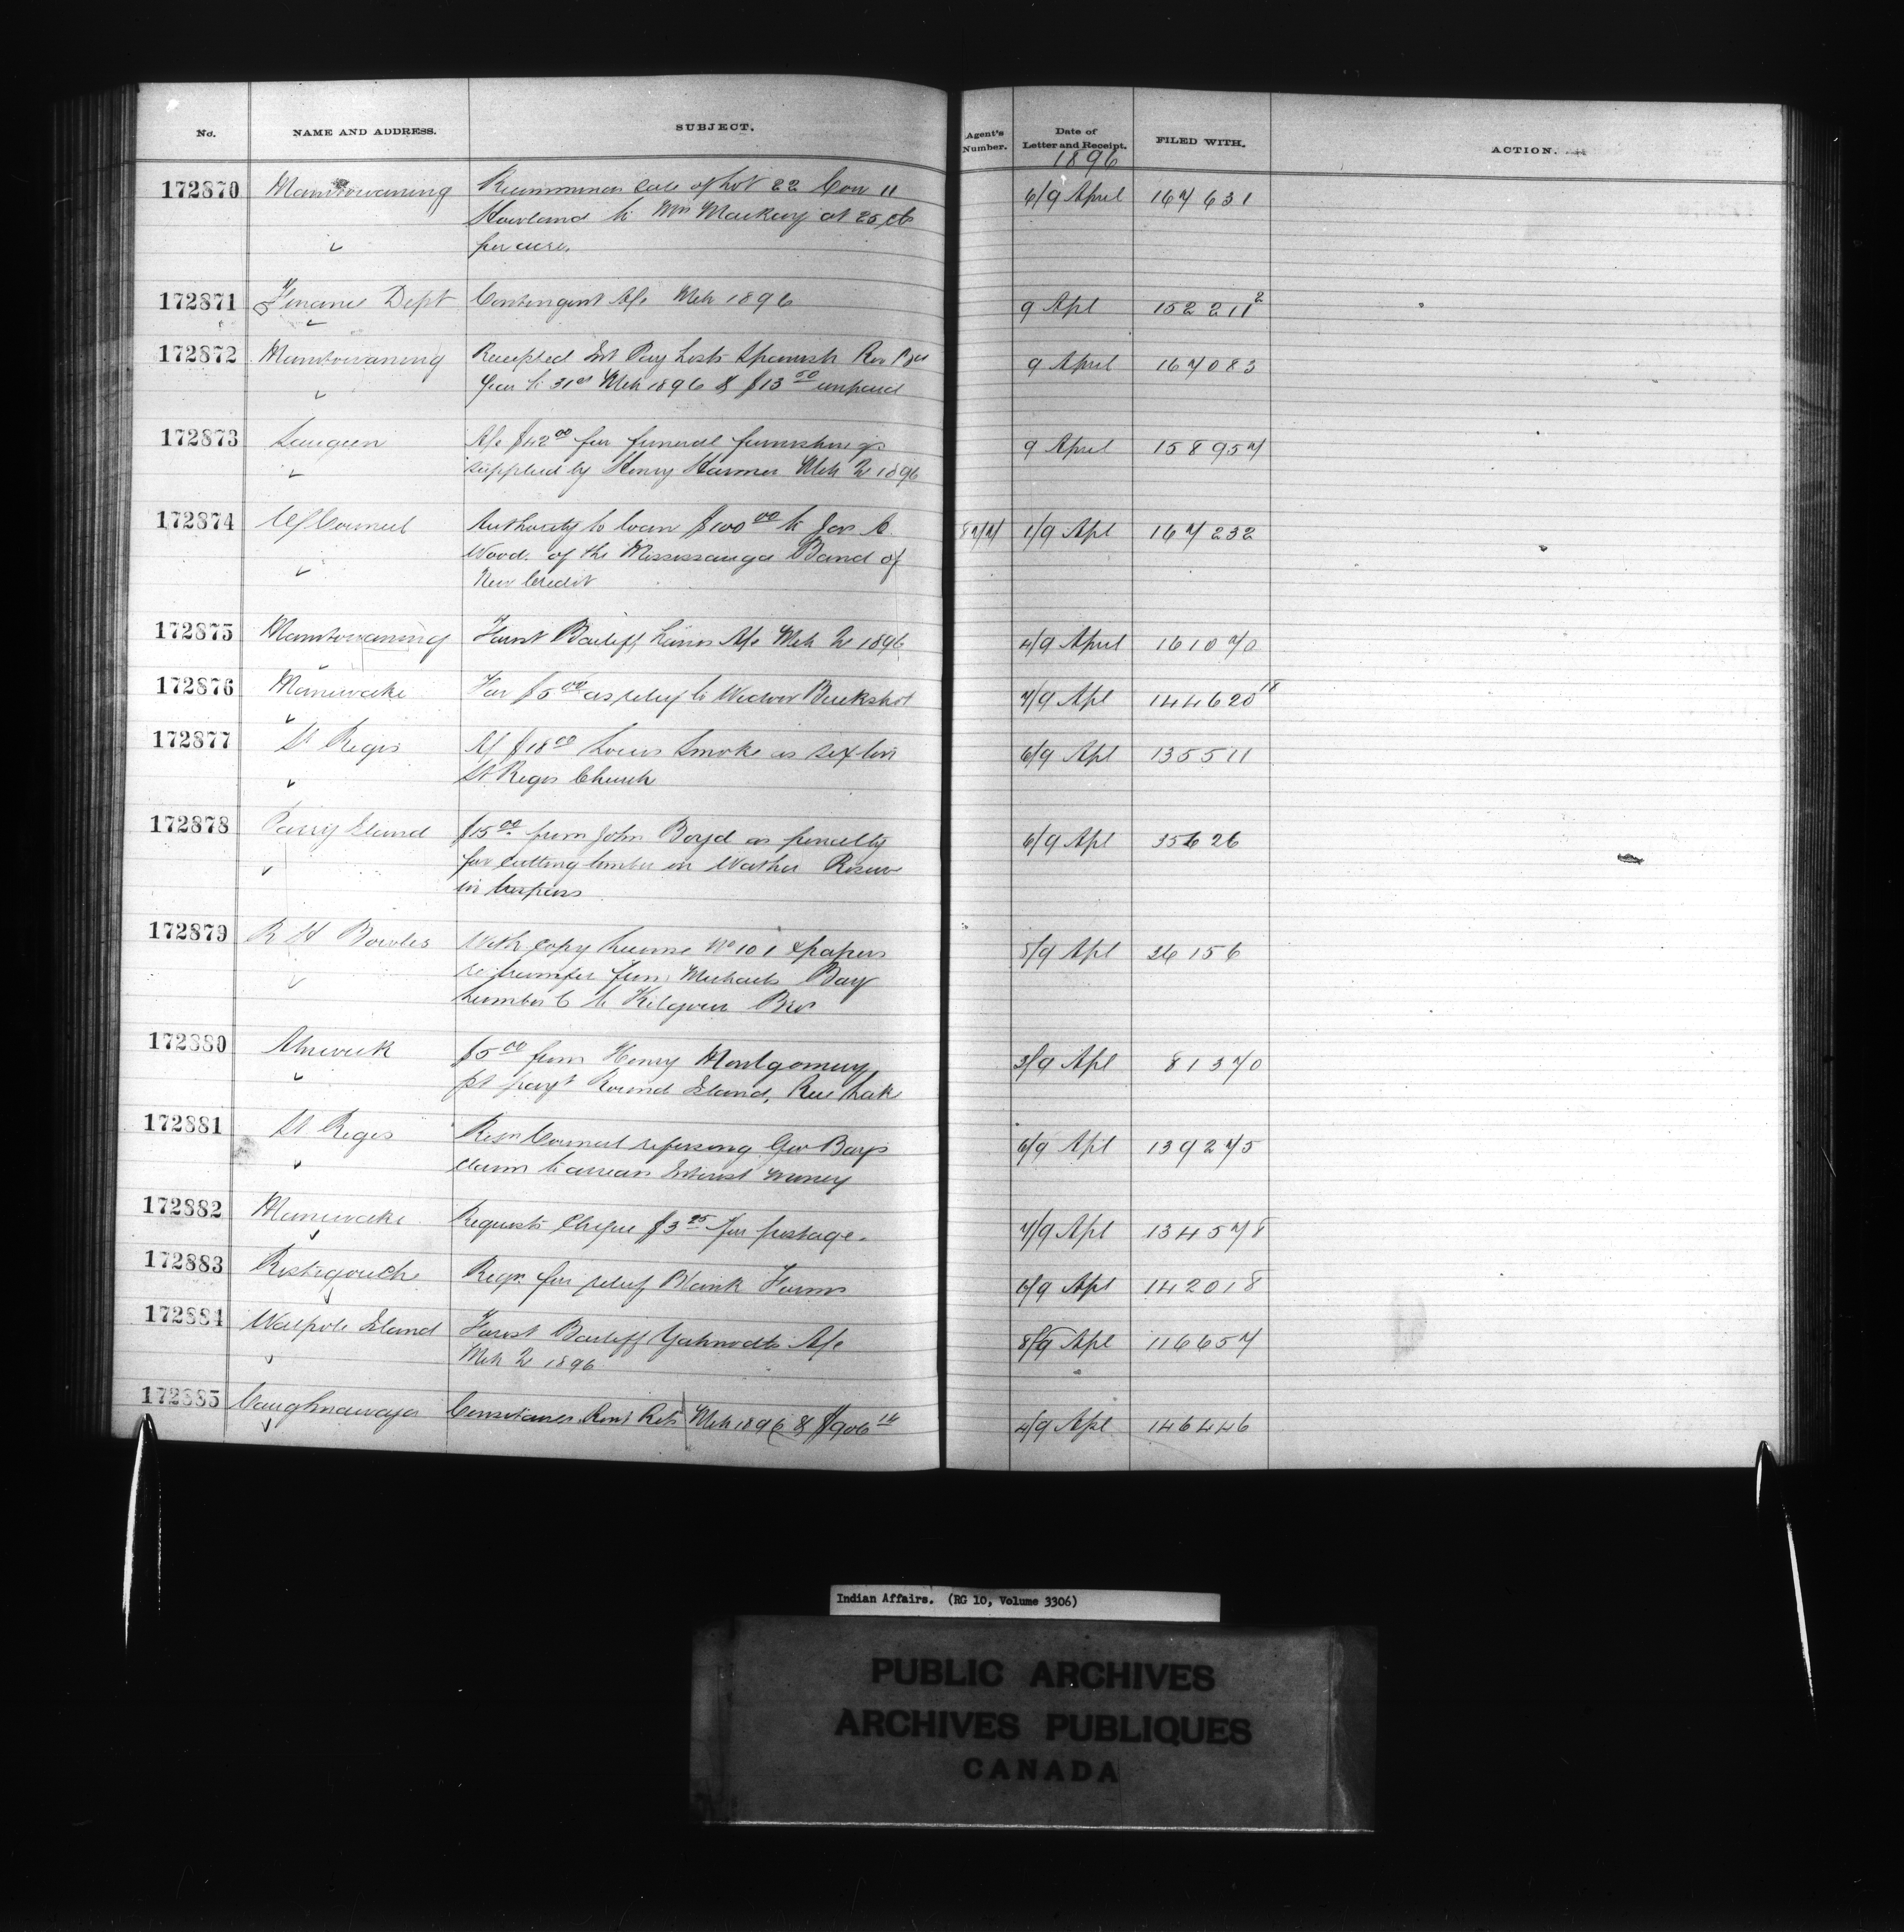 No. NAME AND ADDRESS. SUBJECT. Agent's Number. Date of Letter and Receipt. FILED WITH. ACTION.
1896
172870 Manitowaning Recommends sale of Lot 22 Con 11 6/9 April 167631
Howland to Wm Mackey at 25 cts
per acre.
172871 Finance Dept Contingent A/c Mch 1896 9 Apl 152211 2
172872 Manitowaning Receipted Int Pay Lists Spanish Riv
9 April 167083
Year to 31st Mch 1896 & $13 50 unpaid
172873 Saugeen A/c $42 00 for funeral furnishings 9 April 158957
supplied by Henry Harmer Mch 1896
172874 Council Authority to loan $100 00 to Jas C. 87/7 1/9 Apl 167232
Wood. of the Mississauga Band of
New Credit
172875 Manitowaning Forest Bailiff A/c Mch 1896 4/9 April 161070
172876 Maniwaki For $5 00 as relief to Widow Buckshot 7/9 Apl 144620 18
172877 St Regis Of $18 00 Louis Smoke as sexton 6/9 Apl 135511
St Regis Church
172878 Parry Island $15 00 from John Boyd as penalty 6/9 Apl 35626
for cutting timber on Reserve
in trespass
172879 R H Bowles With copy license No 101 & papers 5/9 Apl 26156
re transfer from Michaels Bay
Lumber C to Kilgour Bros
172880 Alnwick $5 00 from Henry Montgomery, 3/9 Apl 81370
pt payt Round Island, Rice Lake
172881 St Regis Resn Council refusing Geo Bay's 6/9 Apl 139275
claim to arrears Interest money
172882 Maniwaki Requests Cheque $3 25 for postage. 7/9 Apl 134578
172883 Restigouche Reqn. for relief Blank Forms 6/9 Apl 142018
172884 Walpole Island Forest Bailiff Yahnodts A/c 8/9 Apl 116657
Mch 1896
172885 Caughnawaga Constances Rent Mch 1896 & $906 14 4/9 Apl 146446
Indian Affairs. (RG 10, Volume 3306)
PUBLIC ARCHIVES
ARCHIVES PUBLIQUES
CANADA